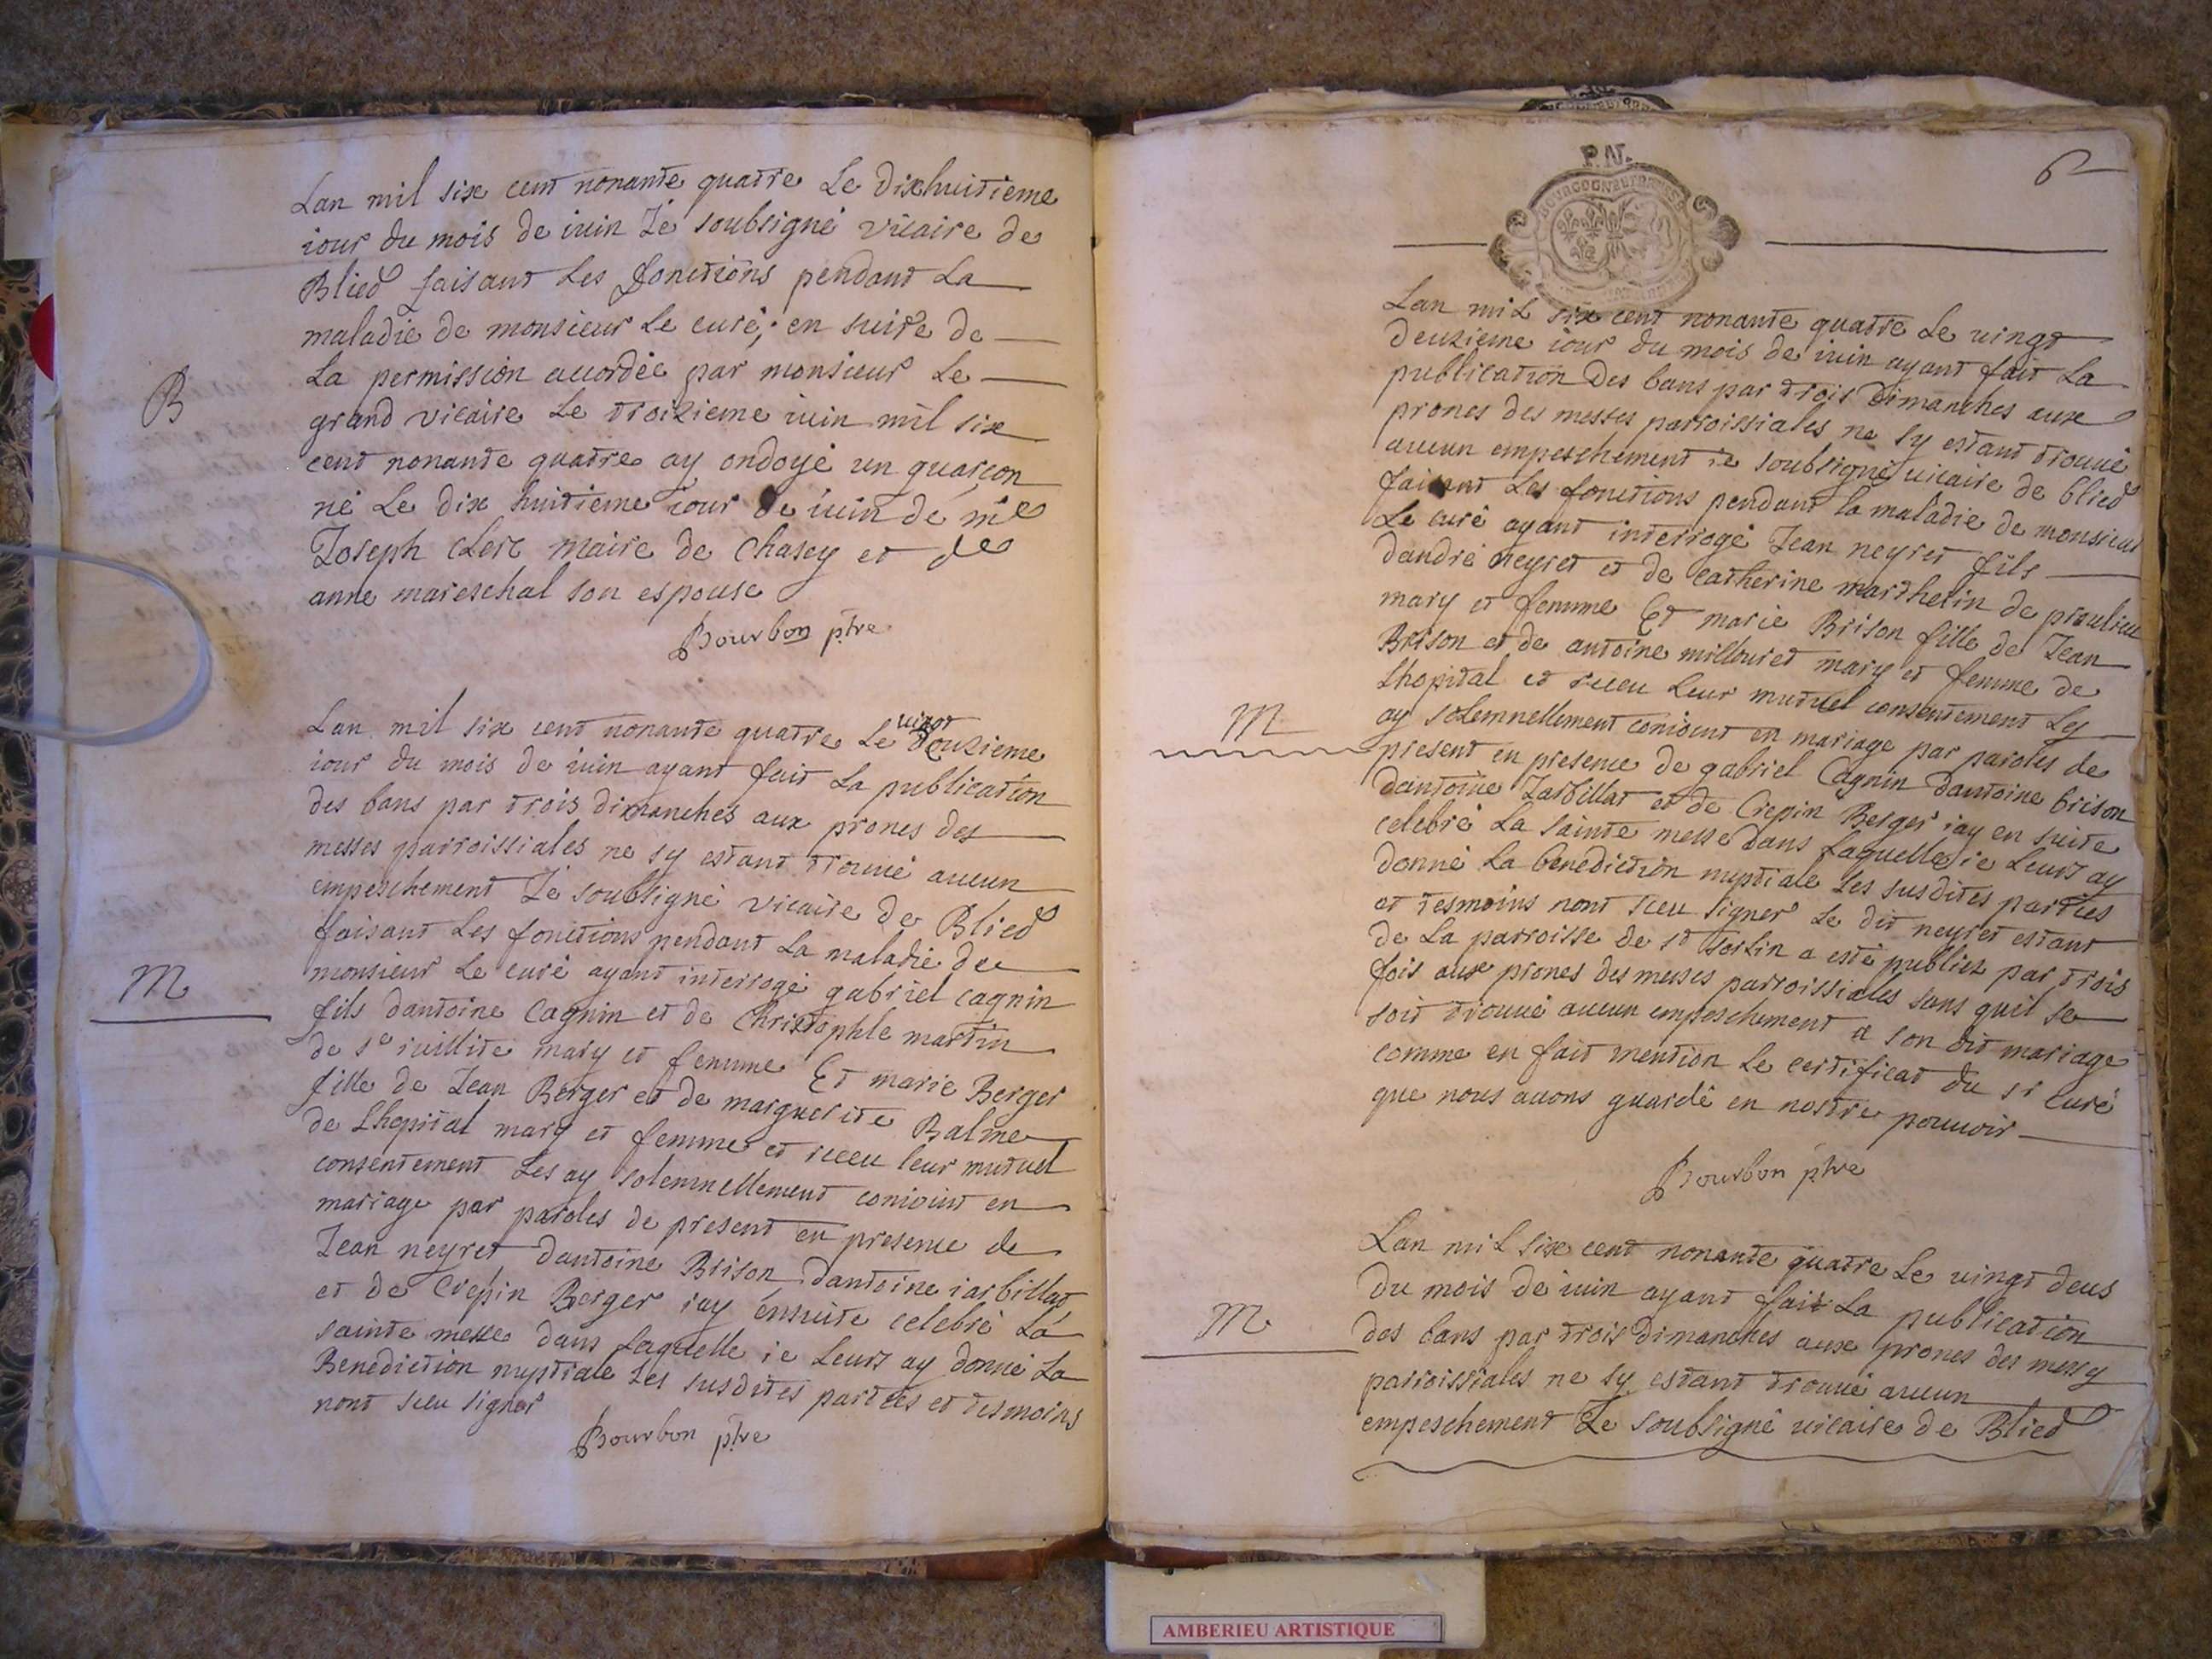 Lan mil six cent nonante quatre Le dixhuitieme
iour du mois de iuin Ie soubsigné vicaire de
Blied faisant Les fonctions pendant La
maladie de monsieur Le curé, en suite de
La permission accordée par monsieur Le
B
grand vicaire Le troizieme iuin mil six
cent nonante quatre ay ondoyé un guarçon
né Le dix huitieme iour de iuin de me
Ioseph Clerc maire de Chasey et de
anne mareschal son espouse
Bourbon ptre
Lan mil six cent nonante quatre Le vingt deuzieme
iour du mois de iuin ayant fait La publication
des bans par trois dimanches aux prones des
messes parroissiales ne sy estant trouué aucun
empeschement Ie soubsigné vicaire de Blied
faisant Les fonctions pendant La maladie de
M
monsieur Le curé ayant interrogé gabriel cagnin
fils dantoine Cagnin et de Christophle martin
de Se iullite mary et femme Et marie Berger
fille de Iean Berger et de marguerite Balme
de Lhopital mary et femme et receu leur mutuel
consentement Les ay solemnellement conioint en
mariage par paroles de present en presence de
Iean neyret dantoine Brison dantoine iarbillat
et de Crepin Berger iay ensuite celebré La
sainte messe dans Laquelle ie Leurs ay donné La
Benediction nuptiale Les susdites parties et tesmoins
nont sceu signer
Bourbon ptre
P.N.
6
Lan mil six cent nonante quatre Le vingt
deuzieme iour du mois de iuin ayant fait La
publication Des bans par trois Dimanches aux
prones des messes parroissiales ne sy estant trouué
aucun empeschement ie soubsigné vicaire de blied
faisant Les fonctions pendant la maladie de monsieur
Le curé ayant interrogé Iean neyret fils
dandré neyret et de Catherine marthelin de praulieu
mary et femme Et marie Brison fille de Iean
Brison et de antoine millouret mary et femme de
Lhopital et receu Leur mutuel consentement Les
M
ay solemnellement conioint en mariage par paroles de
present en presence de gabriel Cagnin dantoine brison
dantoine Iarbillat et de Crepin Berger iay en suite
celebré La sainte messe dans Laquelle ie Leurs ay
donné La benediction nuptiale Les susdites parties
et tesmoins nont sceu signer Le dit neyret estant
de La parroisse de st sorlin a esté publiez par trois
fois aux prones des messes parroissiales sans quil se
soit trouué aucun empeschement a son dit mariage
comme en fait mention Le certificat du sr curé
que nous auons guardé en nostre pouuoir
Bourbon ptre
Lan mil six cent nonante quatre Le vingt deus
du mois de iuin ayant fait La publication
M
des bans par trois dimanches aux prones des messes
parroissiales ne sy estant trouué aucun
empeschement Ie soubsigné vicaire de Blied
AMBERIEU ARTISTIQUE